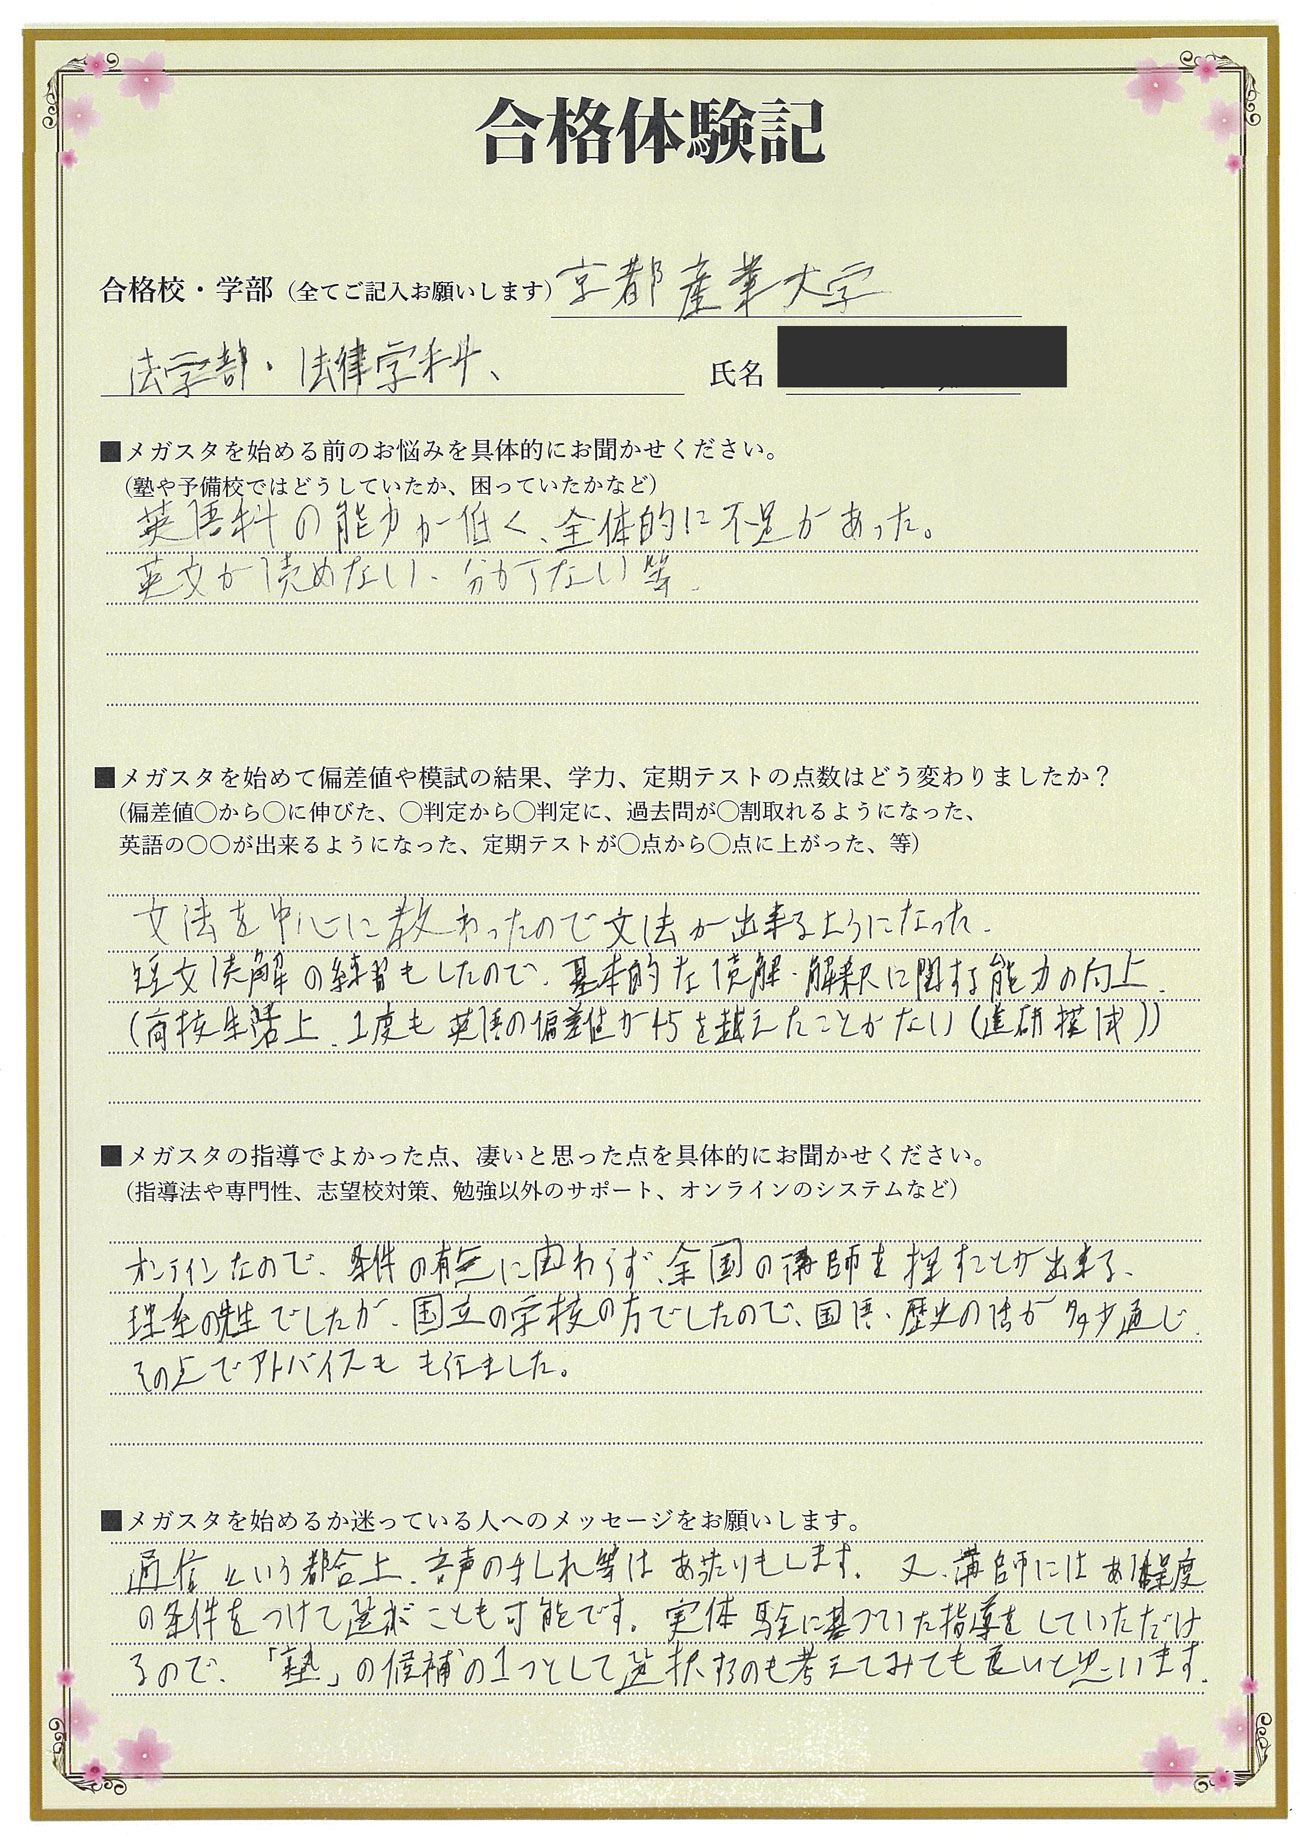 合格体験記
合格校・学部（全てご記入お願いします）京都産業大学
法学部・法律学科、 氏名
■メガスタを始める前のお悩みを具体的にお聞かせください。
（塾や予備校ではどうしていたか、困っていたかなど）
英語科の能力が低く、全体的に不足があった。
英文が読めない、分からない等、
■メガスタを始めて偏差値や模試の結果、学力、定期テストの点数はどう変わりましたか？
（偏差値〇から〇に伸びた、〇判定から〇判定に、過去問が〇割取れるようになった、
英語の〇〇が出来るようになった、定期テストが〇点から〇点に上がった、等）
文法を中心に教わったので文法が出来るようになった、
短文読解の練習もしたので、基本的な読解・解釈に関する能力の向上、
(高校生活上、1度も英語の偏差値が45を越えたことがない(進研模試))
■メガスタの指導でよかった点、凄いと思った点を具体的にお聞かせください。
（指導法や専門性、志望校対策、勉強以外のサポート、オンラインのシステムなど）
オンラインなので、条件の有無に関わらず、全国の講師を探すことが出来る、
理系の先生でしたが、国立の学校の方でしたので、国語・歴史の話が多少通じ、
その点でアドバイスも
■メガスタを始めるか迷っている人へのメッセージをお願いします。
通信という都合上、音声の乱れ等はあったりもします。又、講師にはある程度
の条件をつけて選ぶことも可能です。実体験に基づいた指導をしていただけ
るので、「塾」の候補の1つとして選択するのも考えてみても良いと思います。